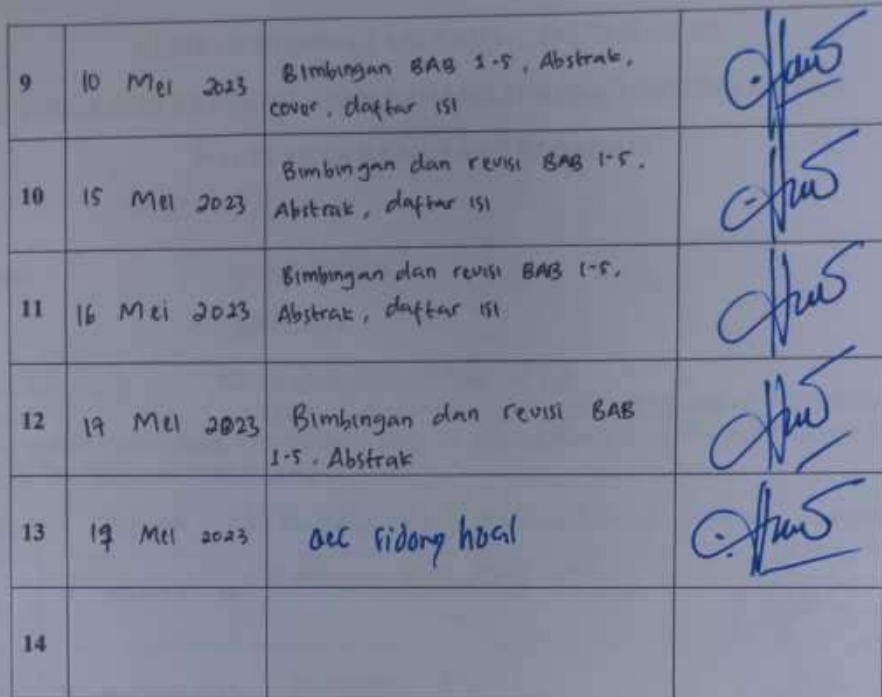 9
10 Mei 2023
Bimbingan BAB 1-5, Abstrak,
cover, daftar isi
10
15 Mei 2023
Bimbingan dan revisi BAB 1-5.
Abstrak, daftar isi
11
16 Mei 2023
Bimbingan dan revisi BAB 1-5.
Abstrak, daftar isi
12
Mei 2023
Bimbingan dan revisi BAB
1-5. Abstrak
13
Mei 2023
acc sidang hasil
14